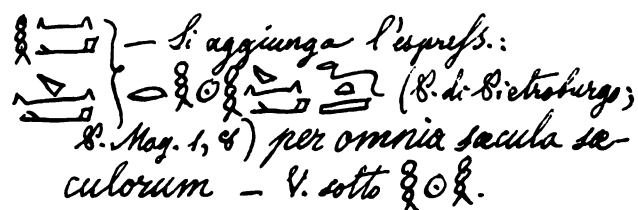 — Si aggiunga l'espreſs.:
𓂋𓎛𓇳𓎛 (P. di Pietroburgo;
P. Mag. 1, 8) per omnia sæcula sæ-
culorum — V. sotto 𓎛𓇳𓎛.